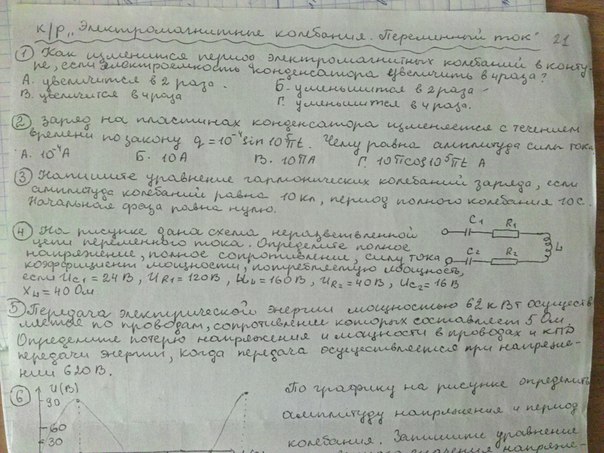 к/р „Электромагнитные колебания. Переменный ток" 21
① Как изменится период электромагнитных колебаний в конту-
ре, если электроемкость конденсатора увеличить в 4 раза?
А. увеличится в 2 раза. Б. уменьшится в 2 раза.
В. увеличится в 4 раза Г. уменьшится в 4 раза.
② Заряд на пластинах конденсатора изменяется с течением
времени по закону q=10⁻⁴sin10⁵πt. Чему равна амплитуда силы тока
А. 10⁻⁴А Б. 10А В. 10πА Г. 10πcos10⁵πt А
③ Напишите уравнение гармонических колебаний заряда, если
амплитуда колебаний равна 10 кл, период полного колебания 10с.
Начальная фаза равна нулю.
④ На рисунке дана схема неразветвленной
цепи переменного тока. Определите полное
напряжение, полное сопротивление, силу тока
коэффициент мощности, потребляемую мощность,
если UC1=24В, UR1=120В, UL=160В, UR2=40В, UC2=16В
XL=40 Ом
C1 R1
L
C2 R2
5 Передача электрической энергии мощностью 62 кВт осуществ
ляется по проводам, сопротивление которых составляет 5 Ом.
Определите потерю напряжения и мощности в проводах и КПД
передачи энергии, когда передача осуществляется при напряже-
нии 620В.
⑥ U(В)
90
60
30
По графику на рисунке определить
амплитуду напряжения и период
колебания. Запишите уравнение
значения напряже-